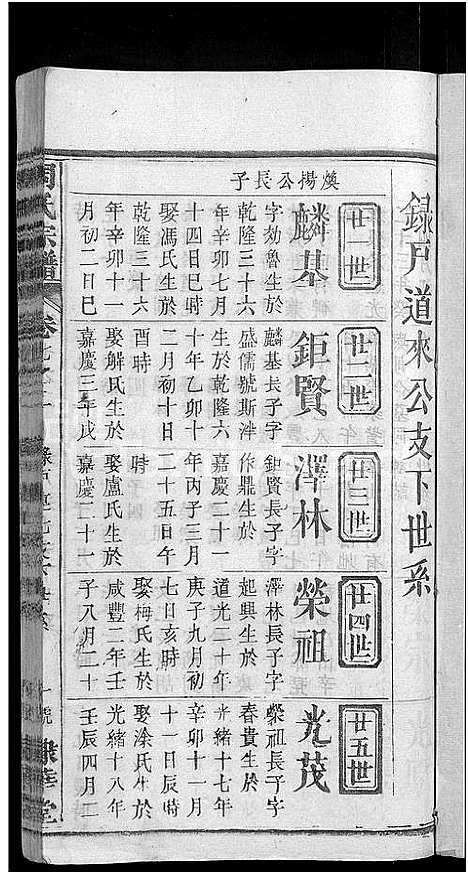 錄戶道來公支下世系
廿一世
煥揚公長子
麟基
字劾魯生於
乾隆三十六
年辛卯七月
十四日巳時
娶馮氏生於
乾隆三十六
年辛卯十一
月初二日巳
廿二世
鉅賢
麟基長子字
盛儒號斯泮
生於乾隆六
十年乙卯十
二月初十日
酉時
娶解氏生於
嘉慶三年戊
廿三世
澤林
鉅賢長子字
作鼎生於
嘉慶二十一
年丙子三月
二十五日午
時
娶盧氏生於
嘉慶二十一
廿四世
榮祖
澤林長子字
起興生於
道光二十年
庚子九月初
七日亥時
娶梅氏生於
咸豐二年壬
子八月二十
廿五世
光茂
榮祖長子字
春貴生於
光緒十七年
辛卯十一月
十一日辰時
娶涂氏生於
光緒十八年
壬辰四月二
周氏宗譜
卷